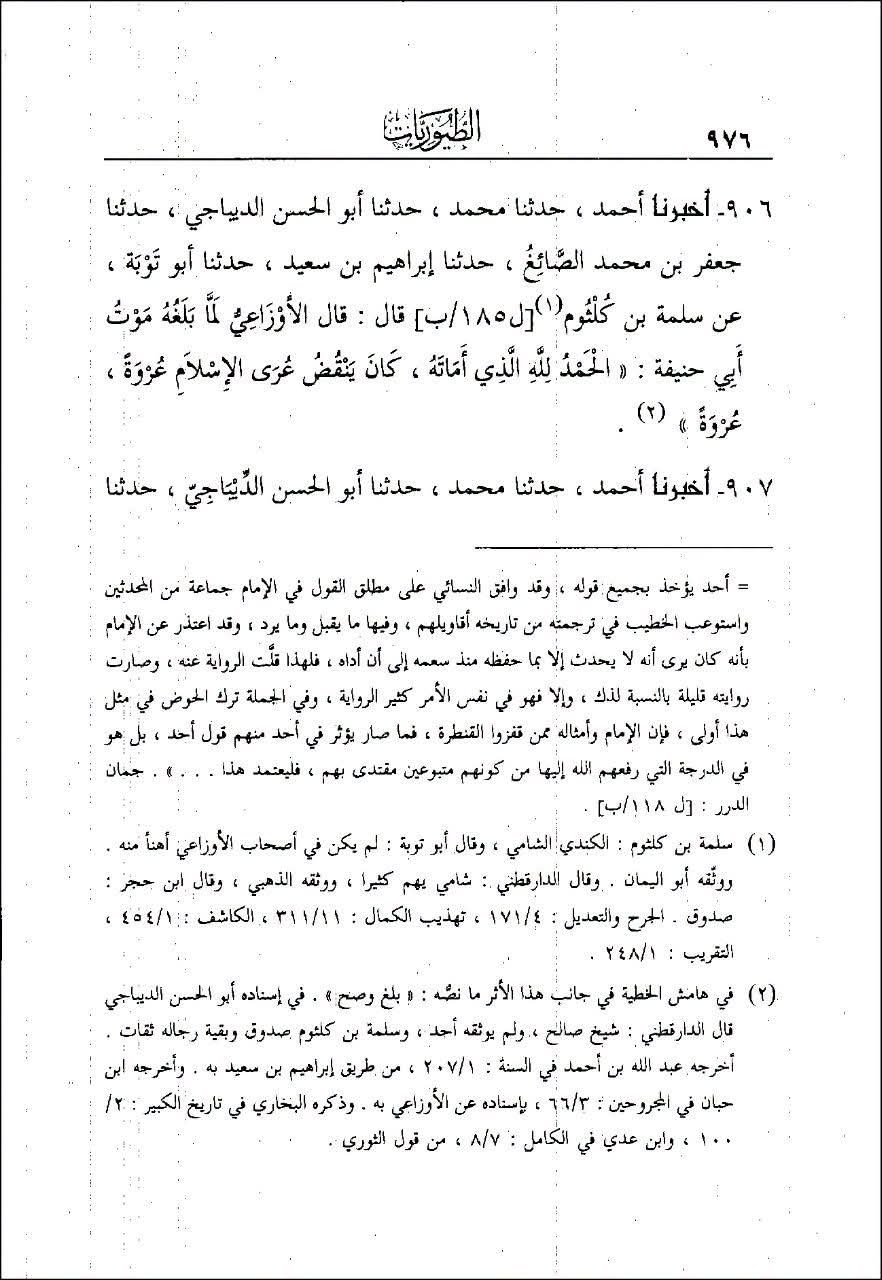 ٩٧٦
الطيوريات
٩٠٦- أخبرنا أحمد ، حدثنا محمد ، حدثنا أبو الحسن الديباجي ، حدثنا
جعفر بن محمد الصَّائِغُ ، حدثنا إبراهيم بن سعيد ، حدثنا أبو تَوْبَة ،
عن سلمة بن كُلْثُوم(١)[ل١٨٥/ب] قال : قال الأَوْزَاعِيُّ لَمَّا بَلَغُهُ مَوْتُ
أَبِي حنيفة : « الْحَمْدُ لِلَّهِ الَّذِي أَمَاتَهُ ، كَانَ يَنْقُضُ عُرَى الإِسْلاَمِ عُرْوَةً ،
عُرْوَةً » (٢) .
٩٠٧- أخبرنا أحمد ، حدثنا محمد ، حدثنا أبو الحسن الدِّيْبَاجِيّ ، حدثنا
= أحد يؤخذ بجميع قوله ، وقد وافق النسائي على مطلق القول في الإمام جماعة من المحدثين
واستوعب الخطيب في ترجمته من تاريخه أقاويلهم ، وفيها ما يقبل وما يرد ، وقد اعتذر عن الإمام
بأنه كان يرى أنه لا يحدث إلا بما حفظه منذ سعمه إلى أن أداه ، فلهذا قلَّت الرواية عنه ، وصارت
روايته قليلة بالنسبة لذلك ، وإلا فهو في نفس الأمر كثير الرواية ، وفي الجملة ترك الخوض في مثل
هذا أولى ، فإن الإمام وأمثاله ممن قفزوا القنطرة ، فما صار يؤثر في أحد منهم قول أحد ، بل هو
في الدرجة التي رفعهم الله إليها من كونهم متبوعين مقتدى بهم ، فليعتمد هذا . . . » . جمان
الدرر : [ل ١١٨/ب] .
(١) سلمة بن كلثوم : الكندي الشامي ، وقال أبو توبة : لم يكن في أصحاب الأوزاعي أهنأ منه .
ووثّقه أبو اليمان . وقال الدارقطني : شامي يهم كثيرا ، ووثقه الذهبي ، وقال ابن حجر :
صدوق . الجرح والتعديل : ١٧١/٤ ، تهذيب الكمال : ٣١١/١١ ، الكاشف : ٤٥٤/١ ،
التقريب : ٢٤٨/١ .
(٢) في هامش الخطية في جانب هذا الأثر ما نصّه : « بلغ وصح » . في إسناده أبو الحسن الديباجي
قال الدارقطني : شيخ صالح ، ولم يوثقه أحد ، وسلمة بن كلثوم صدوق وبقية رجاله ثقات .
أخرجه عبد الله بن أحمد في السنة : ٢٠٧/١ ، من طريق إبراهيم بن سعيد به . وأخرجه ابن
حبان في المجروحين : ٦٦/٣ ، بإسناده عن الأوزاعي به . وذكره البخاري في تاريخ الكبير : ٢/
١٠٠ ، وابن عدي في الكامل : ٨/٧ ، من قول الثوري .